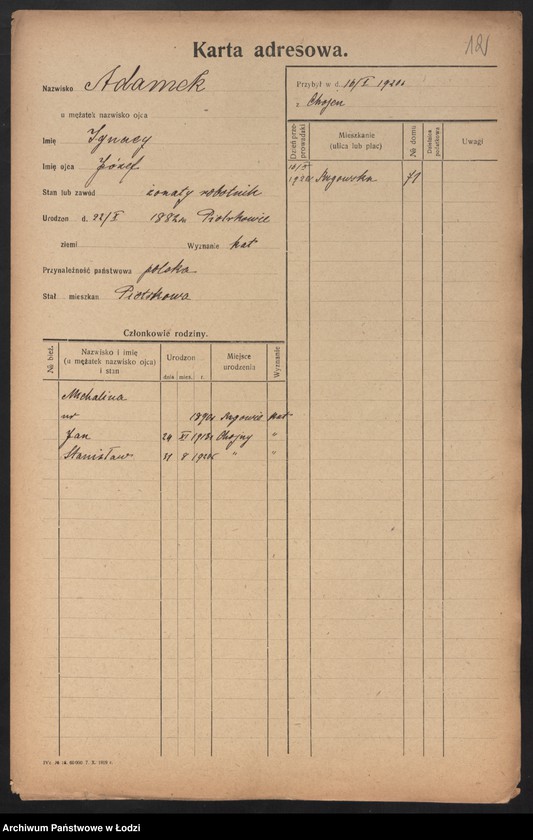 Karta adresowa.
121
Nazwisko Adamek
u mężatek nazwisko ojca
Imię Ignacy
Imię ojca Józef
Stan lub zawód żonaty robotnik
Urodzon d. 22/X 1882 r. Piotrkowie
ziemi Wyznanie kat
Przynależność państwowa polska
Stał. mieszkan Piotrkowa
Przybył w d. 16/X 1920 r.
z Chojen
Dzień przeprowadzki
Mieszkanie (ulica lub plac)
№ domu
Dzielnica podatkowa
Uwagi
1920 71
Członkowie rodziny.
№ bież.
Nazwisko i imię
(u mężatek nazwisko ojca)
i stan
Urodzon
dnia mies. r.
Miejsce urodzenia
Wyznanie
Michalina
kat
Jan 24 XI 1913 Chojny "
Stanisław 31 1920 " "
Archiwum Państwowe w Łodzi